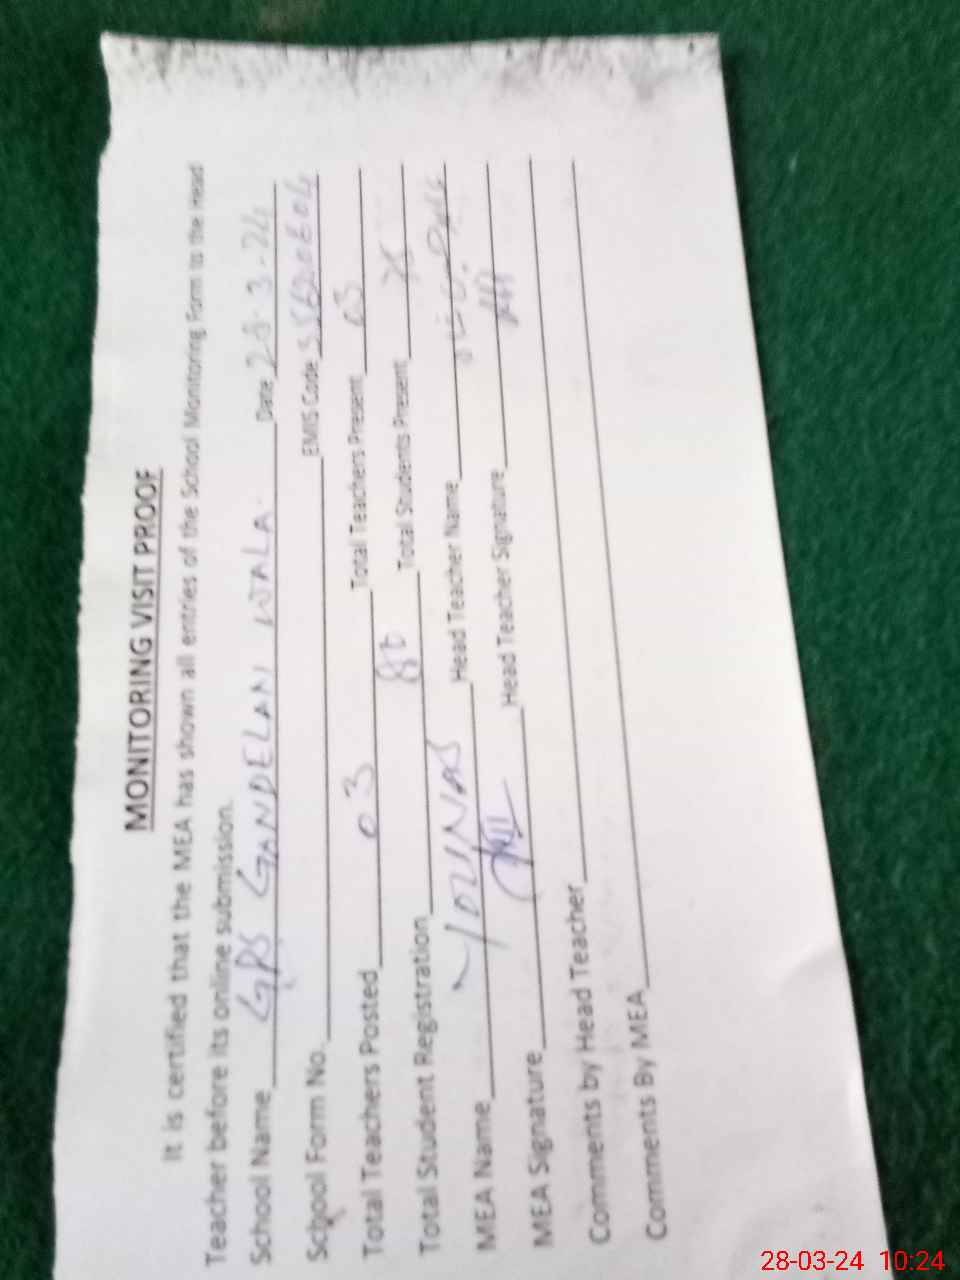 MONITORING VISIT PROOF
It is certified that the MEA has shown all entries of the School Monitoring Form to the Head
Teacher before its online submission.
School Name GPS GANDELAN WALA Date 28-3-24
School Form No. EMIS Code
Total Teachers Posted 03 Total Teachers Present 03
Total Student Registration Total Students Present
MEA Name YOUNAS Head Teacher Name
MEA Signature Head Teacher Signature
Comments by Head Teacher
Comments By MEA
28-03-24 10:24